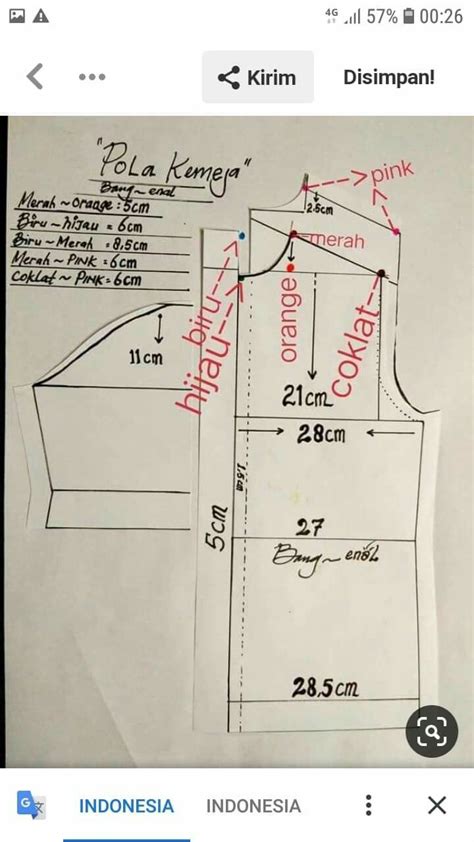 4G 57% 00:26
Kirim
Disimpan!
"Pola Kemeja"
Bang~enal
Merah ~ Orange : 5cm
Biru ~ hijau = 6cm
Biru ~ Merah = 8,5cm
Merah ~ PINK = 6cm
Coklat ~ PINK = 6cm
pink
2.5cm
merah
biru
hijau
orange
coklat
11cm
21cm
28cm
1.5cm
5cm
27
Bang~enal
28,5cm
INDONESIA
INDONESIA